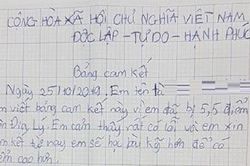 CỘNG HÒA XÃ HỘI CHỦ NGHĨA VIỆT NAM
ĐỘC LẬP - TỰ DO - HẠNH PHÚC
Bảng cam kết
Ngày 25/10/2019. Em tên là
viết bảng cam kết này vì em đã bị 5,5 điểm
Địa Lý. Em cảm thấy rất có lỗi với em xin
kết từ nay em sẽ học bài kỹ hơn để có
cao hơn.